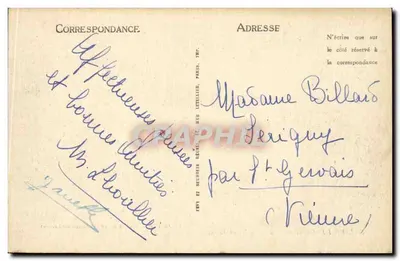 CORRESPONDANCE
Affectueuses pensées
et bonnes amitiés
M Lhouillier
ADRESSE
N'écrire que sur
le côté réservé à
la correspondance
Madame Billard
Serigny
par St Gervais
(Vienne)
CPARAMA